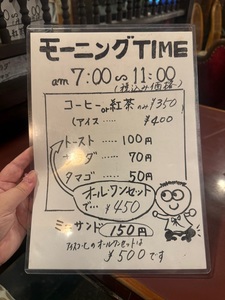 モーニングTIME
am 7:00〜11:00
(税込み価格)
コーヒーor紅茶 のみ¥350
(アイス ‥‥‥ ¥400
トースト ‥‥ 100円
ダ ‥‥ 70円
タマゴ ‥‥ 50円
オールワンセット
で‥ ¥450
サンド 150円
アイスコーヒーのオールワンセットは
¥500です